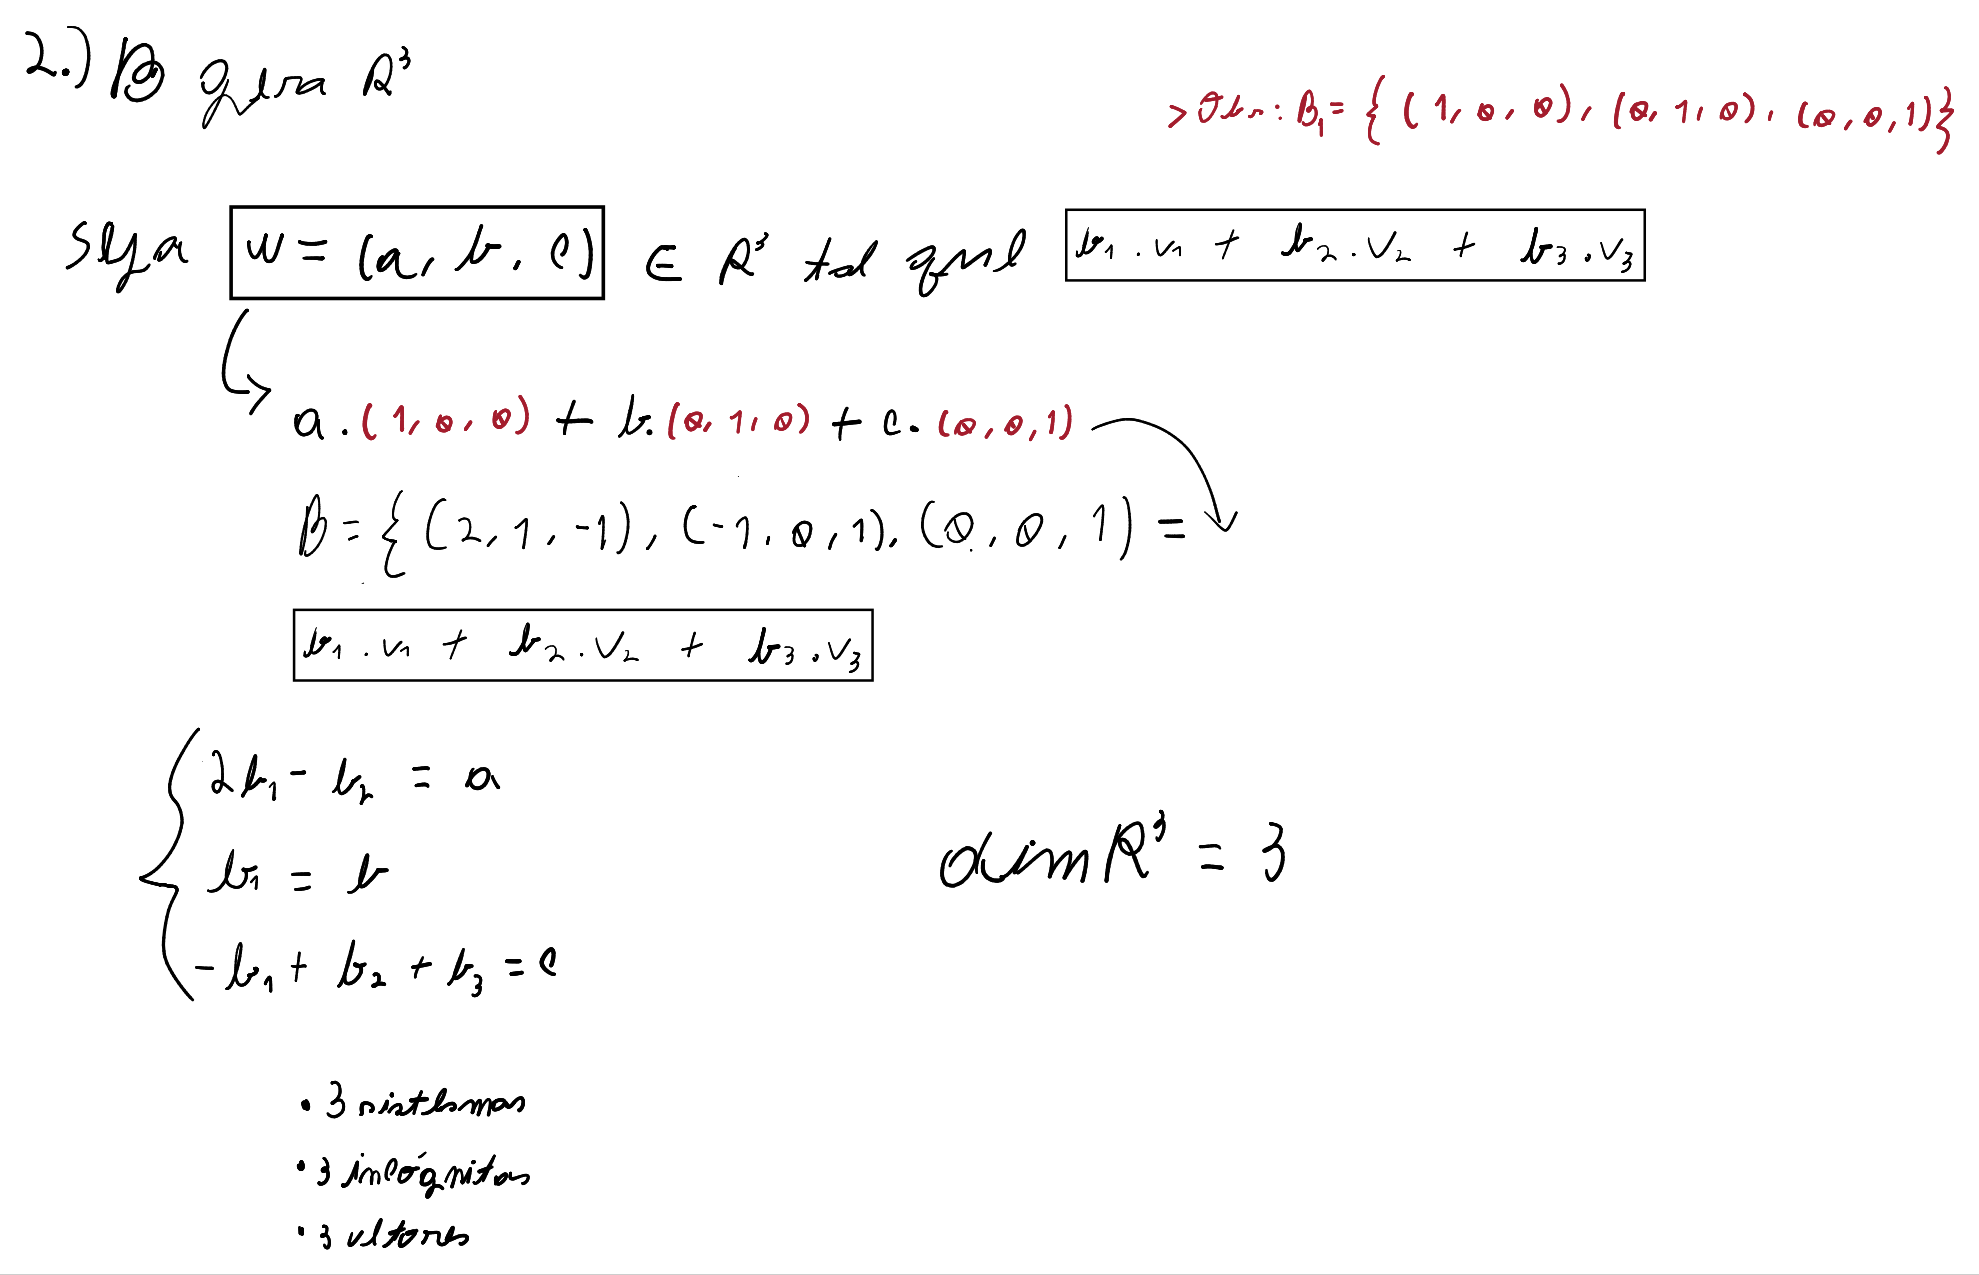 2.) B gera R³
> Obs: B₁ = { (1, 0, 0), (0, 1, 0), (0, 0, 1)}
seja w = (a, b, c) ∈ R³ tal que b₁ . v₁ + b₂ . v₂ + b₃ . v₃
a . (1, 0, 0) + b. (0, 1, 0) + c. (0, 0, 1)
B = { (2, 1, -1), (-1, 0, 1), (0, 0, 1) =
b₁ . v₁ + b₂ . v₂ + b₃ . v₃
{ 2b₁ - b₂ = a
b₁ = b
-b₁ + b₂ + b₃ = c
dim R³ = 3
• 3 sistemas
• 3 incógnitas
• 3 vetores